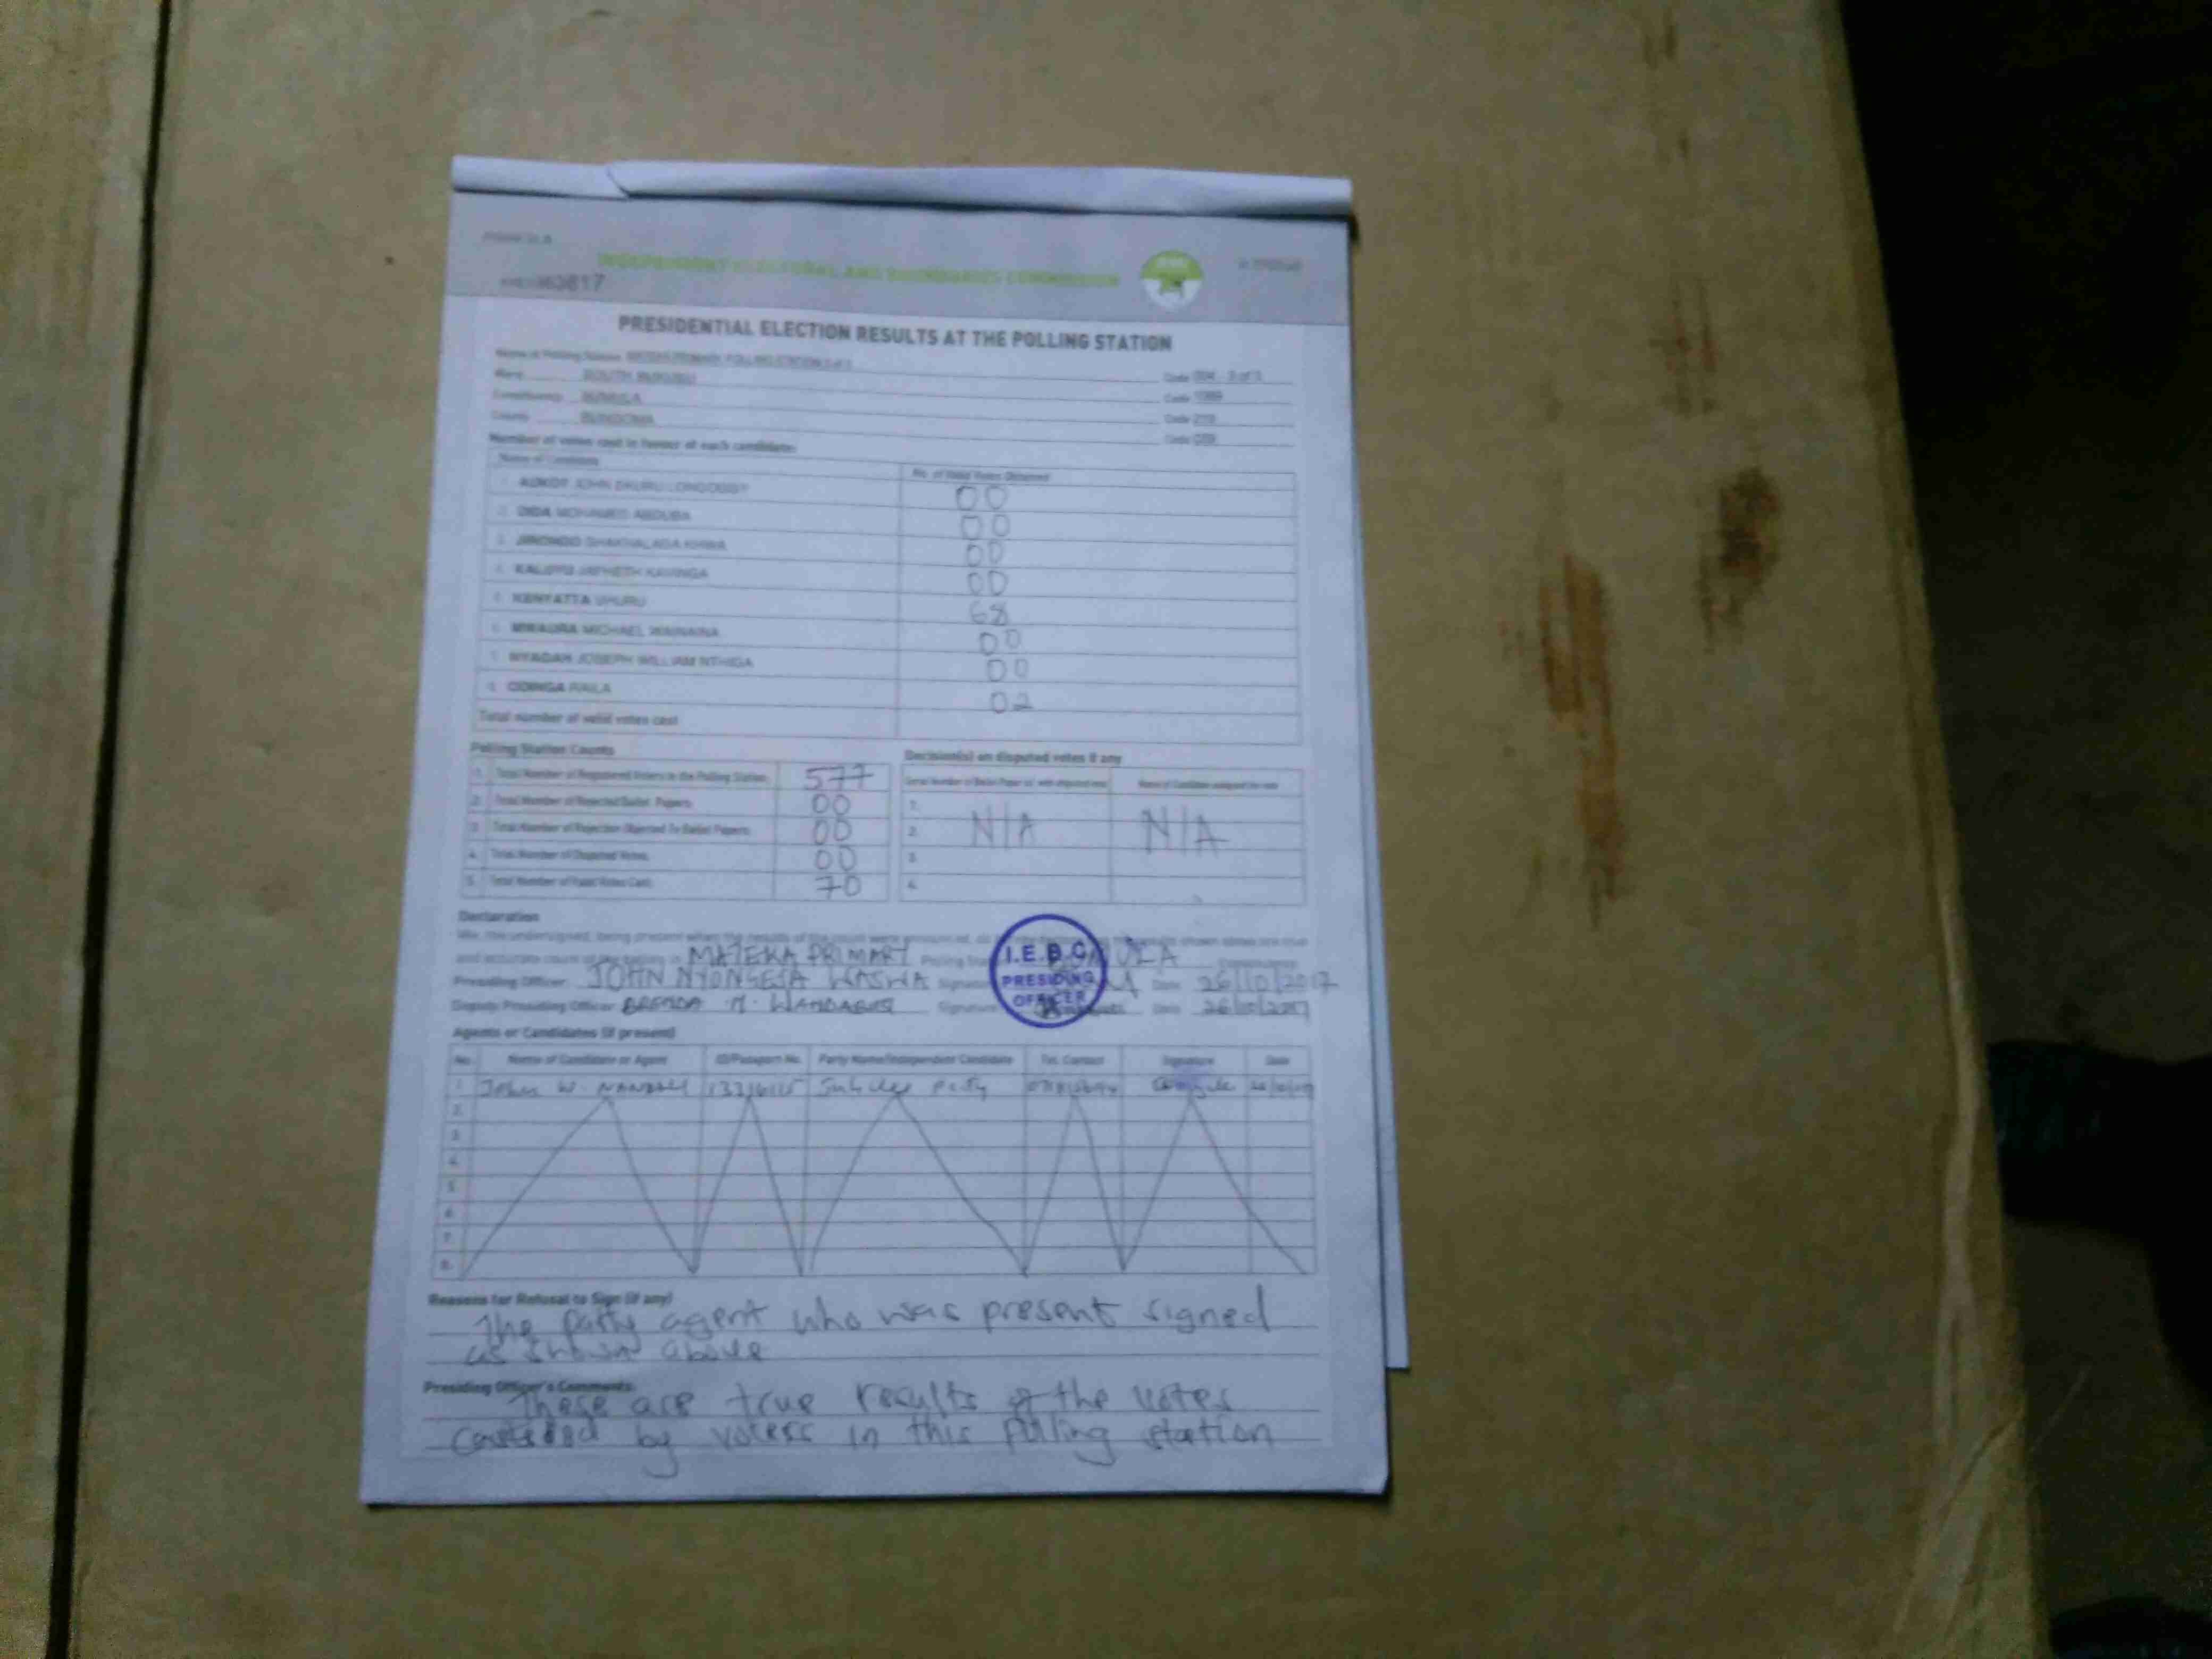 INDEPENDENT ELECTORAL AND BOUNDARIES COMMISSION
63817
PRESIDENTIAL ELECTION RESULTS AT THE POLLING STATION
Name of Polling Station PRIMARY POLLING STATION
Ward SOUTH BUKUSU Code
Constituency BUMULA Code
County BUNGOMA Code
Number of votes cast in favour of each candidate:
Name of Candidate No. of Valid Votes Obtained
1. AUKOT JOHN EKURU LONGOGGY 00
2. DIDA MOHAMED ABDUBA 00
3. JIRONGO SHAKHALAGA KHWA 00
4. KALUYU JAPHETH KAVINGA 00
5. KENYATTA UHURU 68
6. MWAURA MICHAEL WAINAINA 00
7. NYAGAH JOSEPH WILLIAM NTHIGA 00
8. ODINGA RAILA 02
Total number of valid votes cast
Polling Station Counts
1. Total Number of Registered Voters in the Polling Station 577
2. Total Number of Rejected Ballot Papers 00
3. Total Number of Rejection Objected To Ballot Papers 00
4. Total Number of Disputed Votes 00
5. Total Number of Valid Votes Cast 70
Decision(s) on disputed votes if any
Serial Number of Ballot Paper (s) with disputed vote Name of Candidate assigned the vote
1.
2. N/A N/A
3.
4.
Declaration
We, the undersigned, being present when the results of the count were announced, do shown above are true
and accurate count of the ballots in MATEKA PRIMARY Polling Station
Presiding Officer JOHN NYONGESA WASWA Signature Date 26/10/2017
Deputy Presiding Officer BRENDA N. Signature Date 26/10/2017
I.E.B.C
PRESIDING
OFFICER
Agents or Candidates (if present)
No. Name of Candidate or Agent ID/Passport No. Party Name/Independent Candidate Tel. Contact Signature Date
1. W. Party
2.
3.
4.
5.
6.
7.
8.
Reasons for Refusal to Sign (if any)
The party agent who was present signed
as shown above
Presiding Officer's Comments:
These are true results of the votes
by voters in this polling station